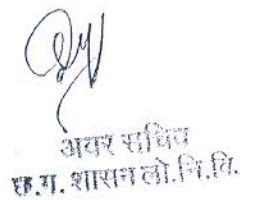 अवर सचिव
छ.ग. शासन लो.नि.वि.